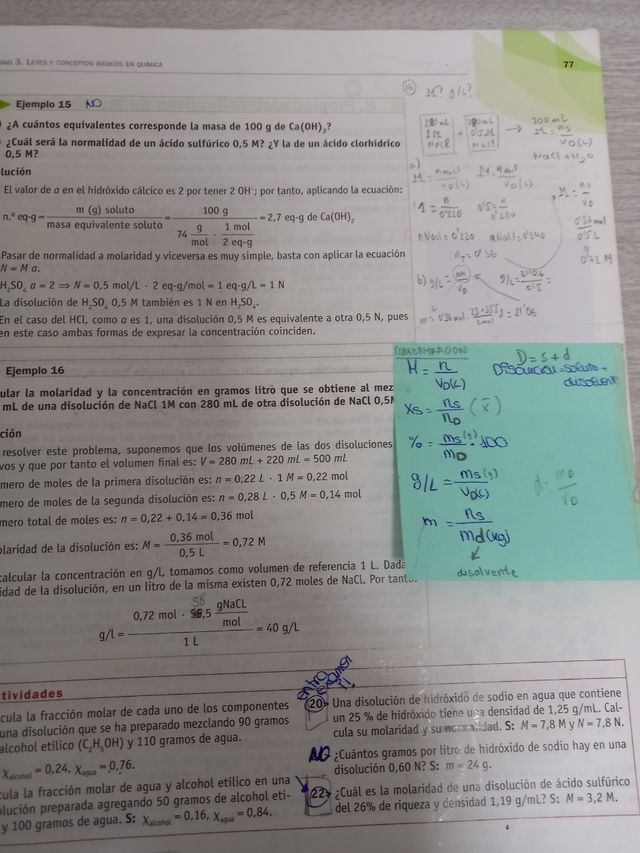 DAD 3. LEYES Y CONCEPTOS BÁSICOS EN QUÍMICA
77
Ejemplo 15 NO
¿A cuántos equivalentes corresponde la masa de 100 g de Ca(OH)₂?
¿Cuál será la normalidad de un ácido sulfúrico 0,5 M? ¿Y la de un ácido clorhídrico
0,5 M?
lución
El valor de a en el hidróxido cálcico es 2 por tener 2 OH⁻; por tanto, aplicando la ecuación:
n.º eq-g = m (g) soluto / masa equivalente soluto = 100 g / 74 g/mol · 1 mol / 2 eq-g = 2,7 eq-g de Ca(OH)₂
Pasar de normalidad a molaridad y viceversa es muy simple, basta con aplicar la ecuación
N = M a.
H₂SO₄ a = 2 ⟹ N = 0,5 mol/L · 2 eq-g/mol = 1 eq-g/L = 1 N
La disolución de H₂SO₄ 0,5 M también es 1 N en H₂SO₄.
En el caso del HCl, como a es 1, una disolución 0,5 M es equivalente a otra 0,5 N, pues
en este caso ambas formas de expresar la concentración coinciden.
Ejemplo 16
ular la molaridad y la concentración en gramos litro que se obtiene al mez
mL de una disolución de NaCl 1M con 280 mL de otra disolución de NaCl 0,5M
ción
resolver este problema, suponemos que los volúmenes de las dos disoluciones
vos y que por tanto el volumen final es: V = 280 mL + 220 mL = 500 mL
mero de moles de la primera disolución es: n = 0,22 L · 1 M = 0,22 mol
mero de moles de la segunda disolución es: n = 0,28 L · 0,5 M = 0,14 mol
mero total de moles es: n = 0,22 + 0,14 = 0,36 mol
olaridad de la disolución es: M = 0,36 mol / 0,5 L = 0,72 M
calcular la concentración en g/l, tomamos como volumen de referencia 1 L. Dada
idad de la disolución, en un litro de la misma existen 0,72 moles de NaCl. Por tanto
g/l = 0,72 mol · ,5 gNaCL/mol / 1 L = 40 g/L
M? g/L?
1M
NaCl
NaCl
500 mL
M = ns / VD(L)
NaCl + H₂O
a)
1 = n / 0'220
nNaCl = 0'220
nT = 0'36
M = ns / VD
0'36 mol
0'5 L
0'72 M
b) g/L =
CONCENTRACION
M = n / VD(L)
D = s + d
Disolución = soluto +
disolvente
Xs = ns / nD (x̄)
% = ms(g) / mD · 100
g/L = ms(g) / VD(L)
d = mD / VD
m = ns / md(kg)
disolvente
tividades
cula la fracción molar de cada uno de los componentes
una disolución que se ha preparado mezclando 90 gramos
alcohol etílico (C₂H₅OH) y 110 gramos de agua.
Xalcohol = 0,24, Xagua = 0,76.
cula la fracción molar de agua y alcohol etílico en una
olución preparada agregando 50 gramos de alcohol etí-
y 100 gramos de agua. S: Xalcohol = 0,16, Xagua = 0,84.
entro
examen
!!
20 Una disolución de hidróxido de sodio en agua que contiene
un 25 % de hidróxido tiene una densidad de 1,25 g/mL. Cal-
cula su molaridad y su normalidad. S: M = 7,8 M y N = 7,8 N.
NO ¿Cuántos gramos por litro de hidróxido de sodio hay en una
disolución 0,60 N? S: m = 24 g.
22 ¿Cuál es la molaridad de una disolución de ácido sulfúrico
del 26% de riqueza y densidad 1,19 g/mL? S: M = 3,2 M.